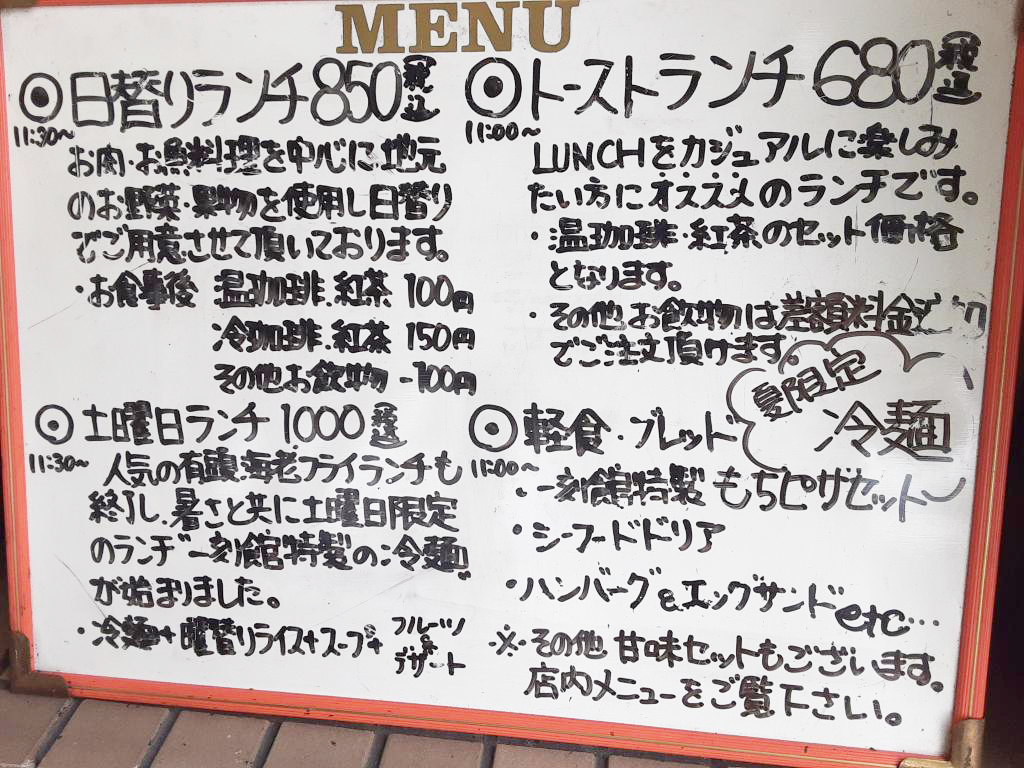 MENU
◎日替りランチ850税込
11:30~
お肉・お魚料理を中心に地元
のお野菜・果物を使用し日替り
でご用意させて頂いております。
・お食事後 温珈琲・紅茶 100円
冷珈琲・紅茶 150円
その他お飲物 -100円
◎土曜日ランチ 1000税込
11:30~
人気の有頭海老フライランチも
終了し、暑さと共に土曜日限定
のランチ"一刻館特製の冷麺"
が始まりました。
・冷麺+曜替りライス+スープ+フルーツ&デザート
◎トーストランチ680税込
11:00~
LUNCHをカジュアルに楽しみ
たい方にオススメのランチです。
・温珈琲・紅茶のセット価格
となります。
・その他お飲物は差額料金
でご注文頂けます。
夏限定
冷麺
◎軽食・ブレッド
11:00~
・一刻館特製もちピザセット
・シーフードドリア
・ハンバーグ&エッグサンドetc…
※その他 甘味セットもございます。
店内メニューをご覧下さい。